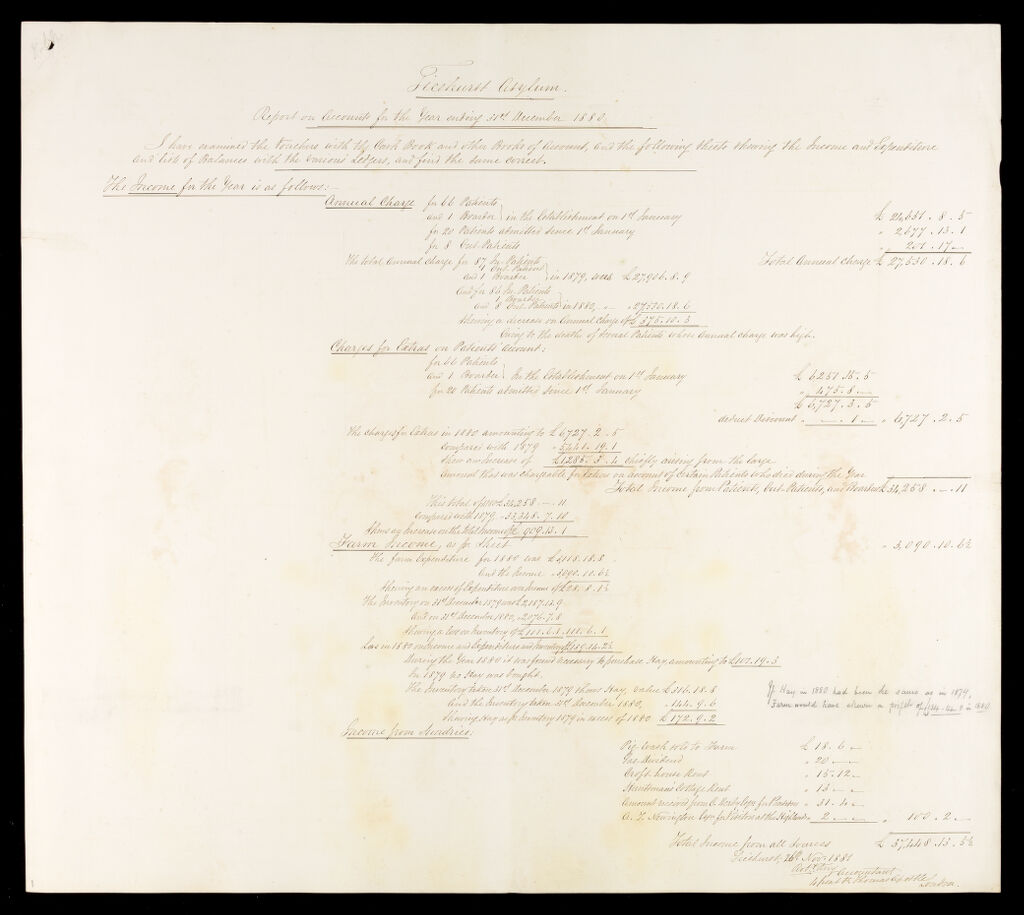 Ticehurst Asylum.
Report on Accounts for the Year ending 31st December 1880.
I have examined the Vouchers with the Cash Book and other Books of Account, and the following sheets shewing the Income and Expenditure
and lists of Balances with the various Ledgers, and find the same correct.
The Income for the Year is as follows:—
Annual Charge for 66 Patients
and 1 Boarder in the Establishment on 1st January £ 24,651 . 8 . 5
for 20 Patients admitted since 1st January " 2677 . 13 . 1
for 8 Out-Patients " 201 . 17 —
Total Annual charge £ 27,530 . 18 . 6
The total Annual Charge for 87 In-Patients
4 Out-Patients
and 1 Boarder in 1879, was £27,906 . 8 . 9
and for 86 In-Patients
1 Boarder
and 8 Out-Patients in 1880, " — 27530 . 18 . 6
shewing a decrease on Annual Charge of £ 375 . 10 . 3
owing to the deaths of several Patients whose Annual charge was high.
Charges for Extras on Patients' account:
for 66 Patients
and 1 Boarder In the Establishment on 1st January £ 6251 . 15 . 5
for 20 Patients admitted since 1st January " 475 . 8 —
£ 6,727 . 3 . 5
deduct Discount " — . 1 — " 6727 . 2 . 5
The charges for Extras in 1880 amounting to £6727 . 2 . 5
compared with 1879 " 5,441 . 19 . 1
shew an Increase of £1285 . 3 . 4 chiefly arising from the large
amount that was chargeable for Extras on account of Certain Patients who died during the Year
Total Income from Patients, Out-Patients, and Boarder £ 34,258 . — . 11
This total of £34,258 . — . 11
compared with 1879 — 33,348 . 7 . 10
shews an Increase on the total Income of £ 909 . 13 . 1
Farm Income, as per Sheet " 3,090 . 10 . 6½
The farm Expenditure for 1880 was £3118 . 18 . 8
and the Income " 3090 . 10 . 6½
shewing an excess of Expenditure over Income of £28 . 8 . 1½
The Inventory on 31st December 1879 was £2,187 . 13 . 9
and on 31st December 1880, " 2076 . 7 . 8
shewing a loss on Inventory of £111 . 6 . 1 . 111 . 6 . 1
Loss in 1880 on Income and Expenditure and Inventory £139 . 14 . 2½
During the Year 1880 it was found necessary to purchase Hay, amounting to £101 . 19 . 3
In 1879 no Hay was bought.
The Inventory taken 31st December 1879 shews Hay, value £316 . 18 . 8
and the Inventory taken 31st December 1880, " 144 . 9 . 6
shewing Hay as per Inventory 1879 in excess of 1880 £ 172 . 9 . 2
If Hay in 1880 had been the same as in 1879,
Farm would have shewn a profit of in 1880
Income from Sundries:
Pig-wash sold to Farm £ 18 . 6 —
Gas Dividend " 20 — —
Croft-house Rent " 15 . 12 —
Huntsman's Cottage Rent " 13 — —
Amount received from Esqre for " 31 . 4 —
A. S. Newington Esqre for Visitors at the Highlands " 2 — — " 100 . 2 —
Total Income from all sources £ 37,448 . 13 . 5½
Ticehurst, 26th Nov. 1881
Accountant
St Thomas Apostle
London.